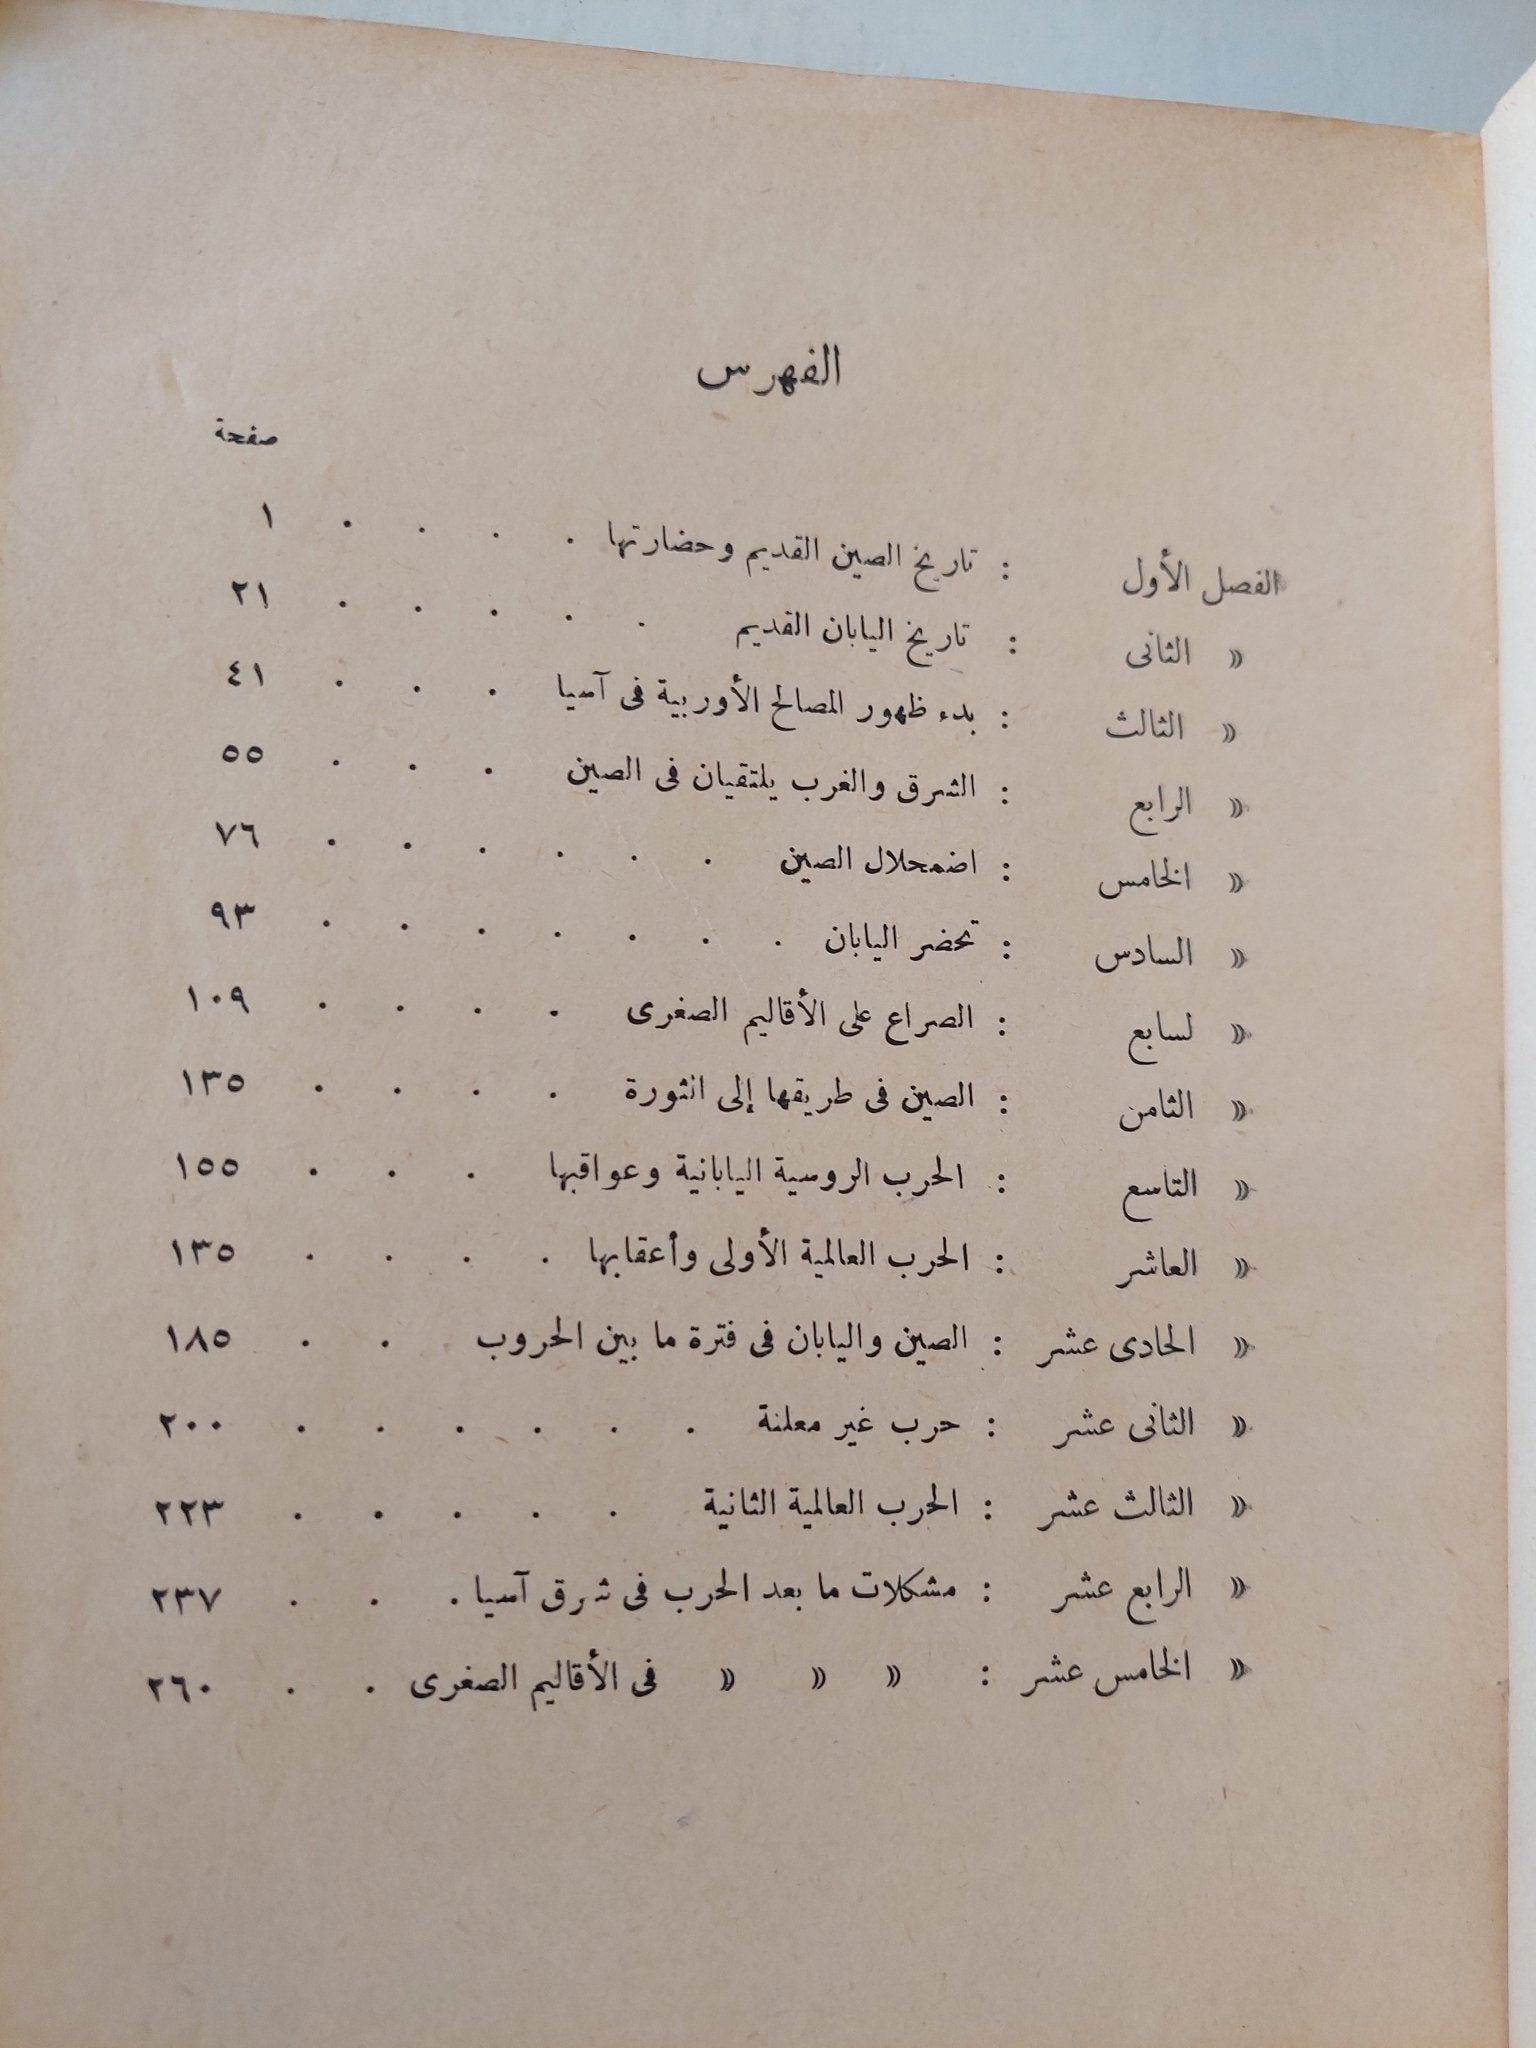 الفهرس
صفحة
الفصل الأول : تاريخ الصين القديم وحضارتها . . . . ١
» الثانى : تاريخ اليابان القديم . . . . . ٢١
» الثالث : بدء ظهور المصالح الأوربية فى آسيا . . . ٤١
» الرابع : الشرق والغرب يلتقيان فى الصين . . . ٥٥
» الخامس : اضمحلال الصين . . . . . . ٧٦
» السادس : تحضر اليابان . . . . . . . ٩٣
» لسابع : الصراع على الأقاليم الصغرى . . . . ١٠٩
» الثامن : الصين فى طريقها إلى انثورة . . . . ١٣٥
» التاسع : الحرب الروسية اليابانية وعواقبها . . . ١٥٥
» العاشر : الحرب العالمية الأولى وأعقابها . . . . ١٣٥
» الحادى عشر : الصين واليابان فى فترة ما بين الحروب . . ١٨٥
» الثانى عشر : حرب غير معلنة . . . . . . ٢٠٠
» الثالث عشر : الحرب العالمية الثانية . . . . . ٢٢٣
» الرابع عشر : مشكلات ما بعد الحرب فى شرق آسيا . . . ٢٣٧
» الخامس عشر : » » » فى الأقاليم الصغرى . . ٢٦٠